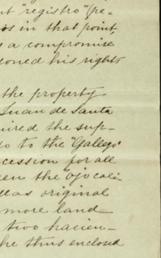 t "registro" (pe-
ss in that point
s a compromise
ioned his rights
the property
Juan de Santa
uired the sup-
s to the "Gallego
cession for all
een the Ojo cali-
d as original
more land
two hacien-
he thus enclosed